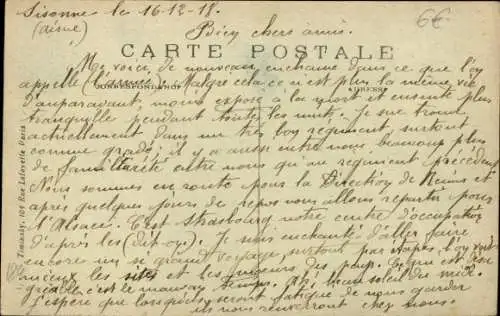 Sisonne le 16-12-18.
(aisne)
6€
Bien chers amis.
CARTE POSTALE
Me voici, de nouveau, enchaîné dans ce que l'on
appelle (l'armée). Malgré cela ce n'est plus la même vie
CORRESPONDANCE
ADRESSE
d'auparavant, moins exposé à la mort et ensuite plus
tranquille pendant toutes les nuits. Je me trouve
actuellement dans un très bon regiment, surtout
comme gradé; il y a aussi entre nous beaucoup plus
de familiarité entre nous qu'au regiment précédent
Nous sommes en route pour la Direction de Reims et
après quelques jours de repos nous allons repartir pour
l'Alsace. C'est Strasbourg notre centre d'occupation
d'après les (dit-on). Je suis enchanté d'aller faire
encore un si grand voyage, surtout pas après l'on voit
mieux les sites et les mœurs des pays. Ce qui est désa
gréable c'est le mauvais temps. Ah! beau soleil du midi.
J'espère que lorsqu'ils seront fatigué de nous garder
ils nous renverront chez nous.
Tominsky, 104 Rue Lafayette Paris